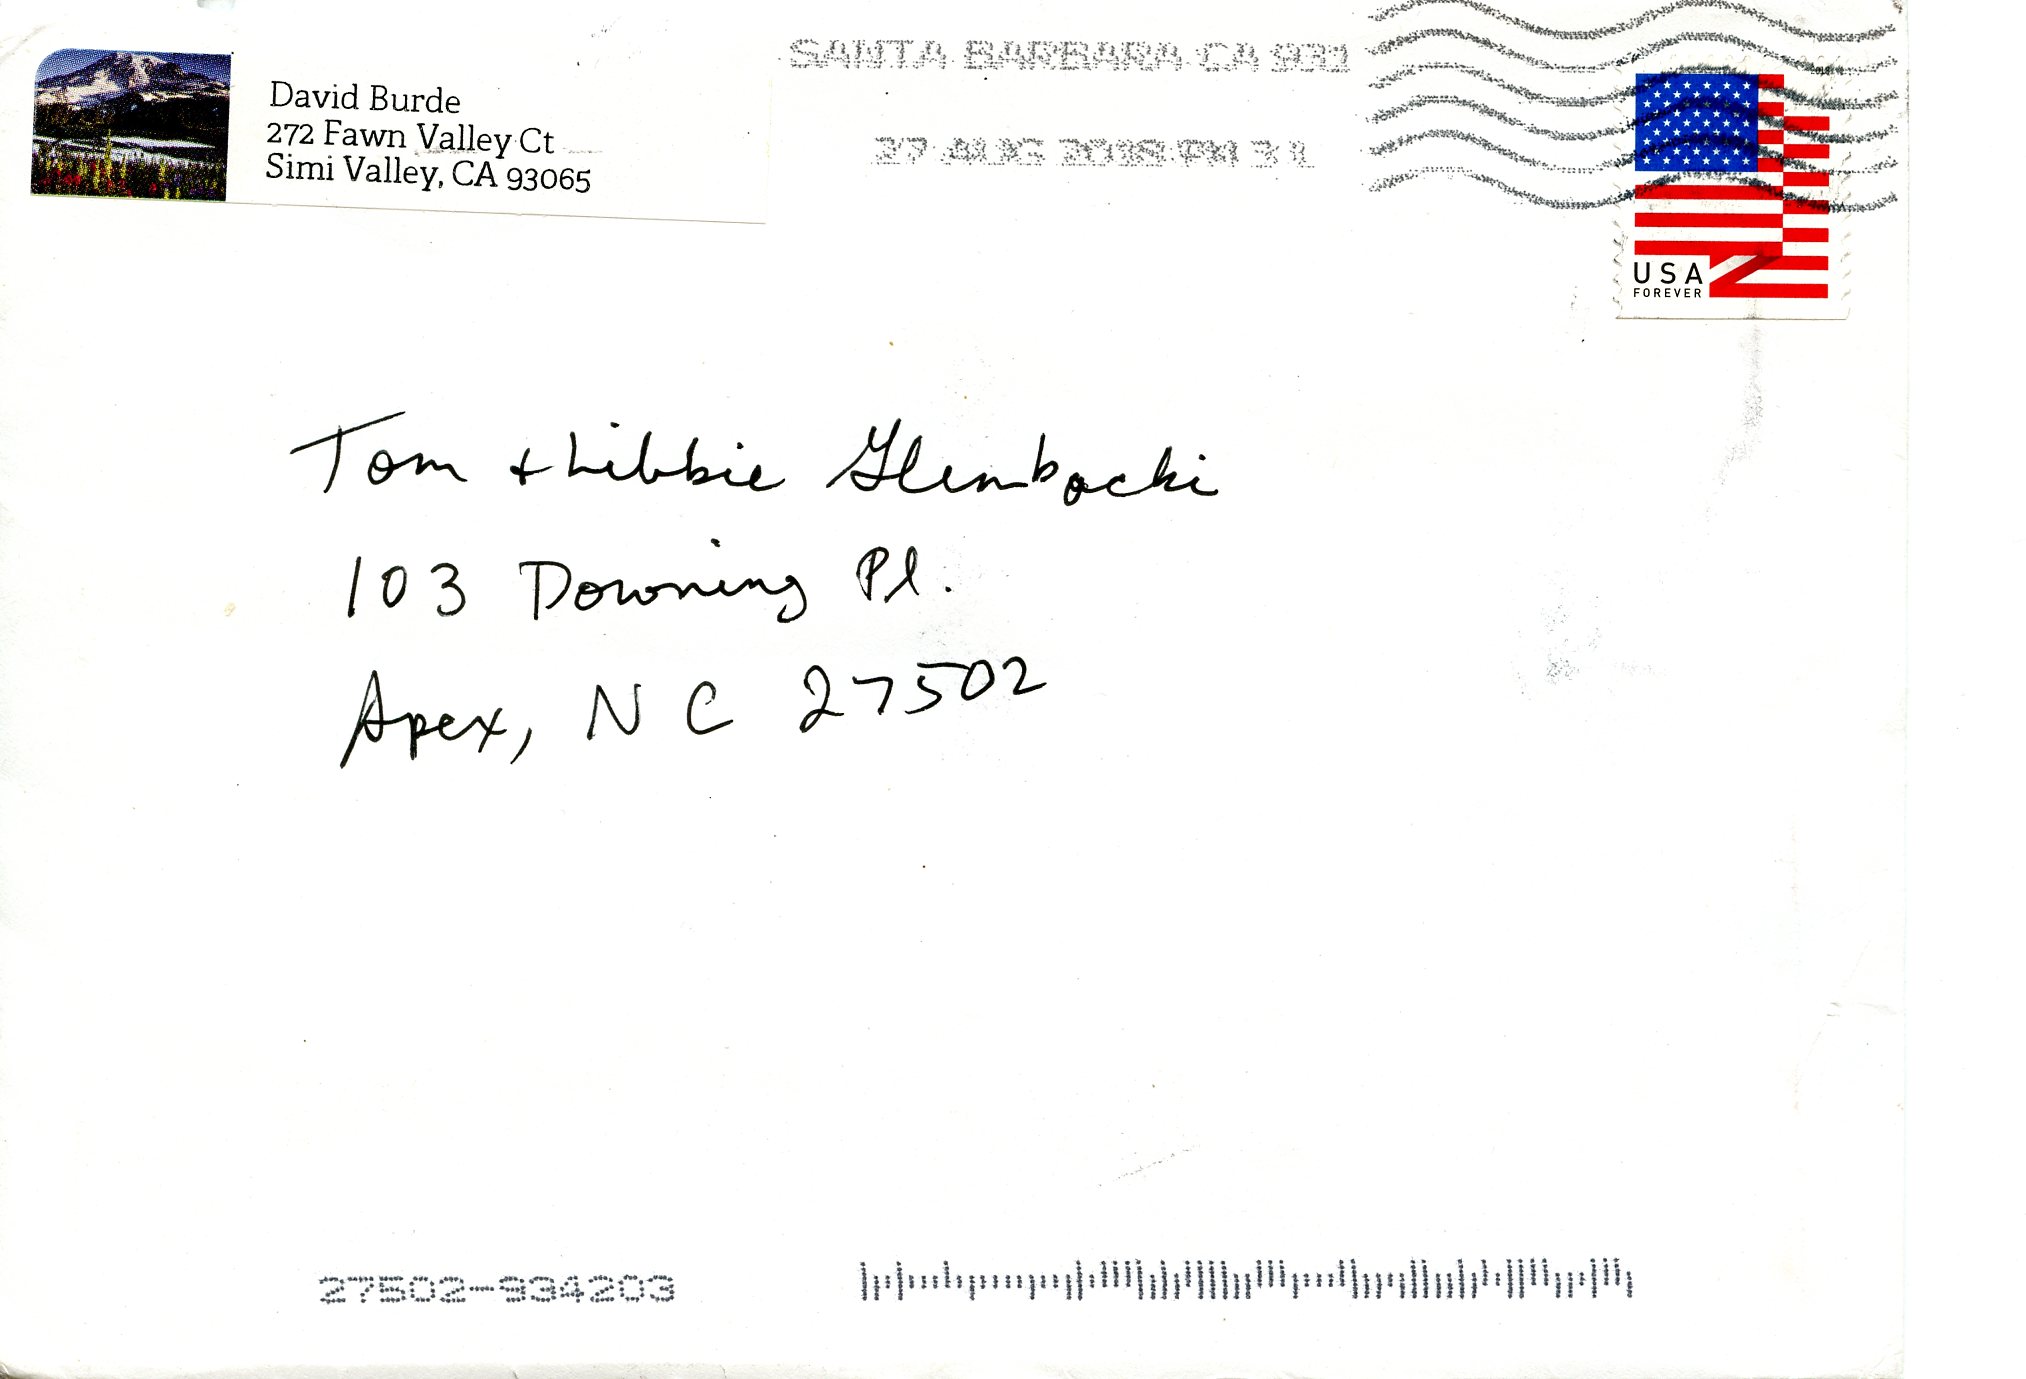 David Burde
272 Fawn Valley Ct
Simi Valley, CA 93065
SANTA BARBARA CA 931
27 AUG 2018 PM 3 L
USA
FOREVER
Tom + Libbie Glembocki
103 Downing Pl.
Apex, NC 27502
27502-934203